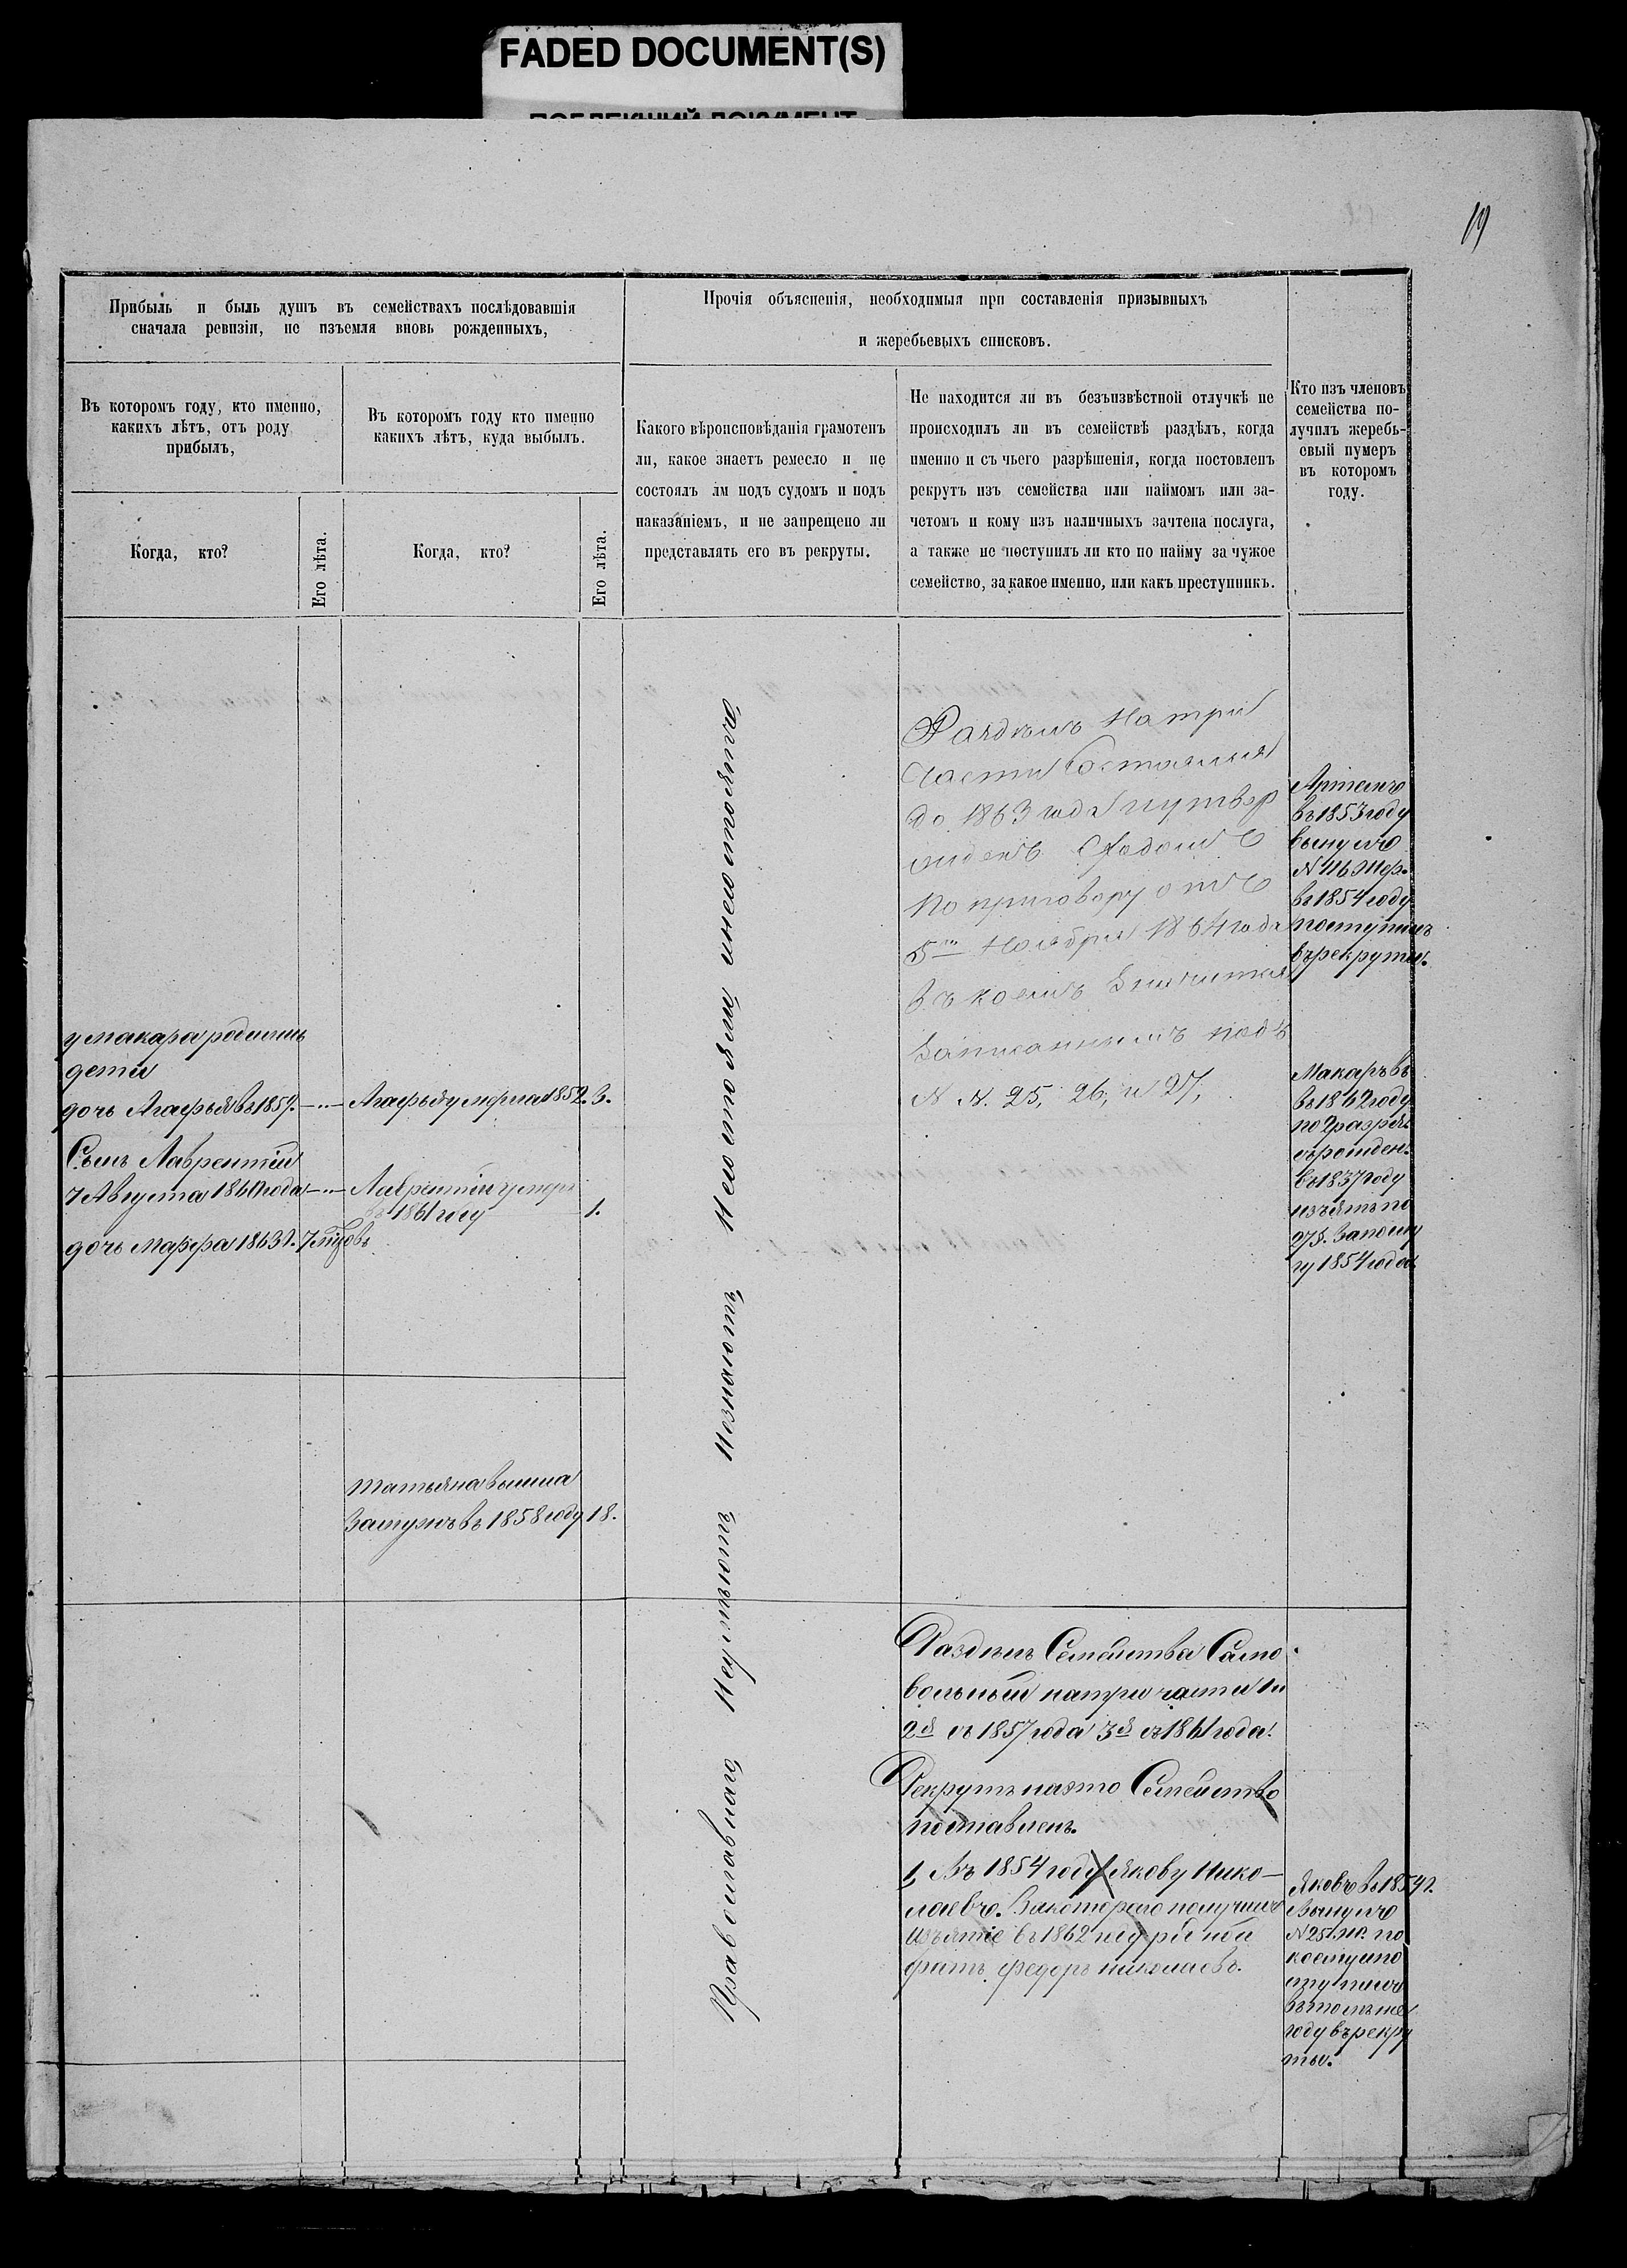 FADED DOCUMENT(S)
19
Прибыль и быль душъ въ семействахъ послѣдовавшія
сначала ревизіи, не изъемля вновь рожденныхъ,
Прочія объясненія, необходимыя при составленія призывныхъ
и жеребьевыхъ списковъ.
Въ которомъ году, кто именно,
какихъ лѣтъ, отъ роду
прибылъ,
Въ которомъ году кто именно
какихъ лѣтъ, куда выбылъ.
Какого вѣроисповѣданія грамотенъ
ли, какое знаетъ ремесло и не
состоялъ лм подъ судомъ и подъ
наказаніемъ, и не запрещено ли
представлять его въ рекруты.
Не находится ли въ безъизвѣстной отлучкѣ не
происходилъ ли въ семействѣ раздѣлъ, когда
именно и съ чьего разрѣшенія, когда постовленъ
рекрутъ изъ семейства или наймомъ или за-
четомъ и кому изъ наличныхъ зачтена послуга,
а также не поступилъ ли кто по найму за чужое
семейство, за какое именно, или какъ преступникъ.
Кто изъ членовъ
семейства по-
лучилъ жеребь-
евый нумеръ
въ которомъ
году.
Когда, кто?
Его лѣта.
Когда, кто?
Его лѣта.
умакара родились
дети
дочь Агафья въ 1859. Агафья умерла 1852. 3.
Сынъ Лаврентій
7 Августа 1860 года Лаврентій умеръ
въ 1861 году 1.
дочь Марфа 1863 г.
Татьяна вышла
Замужъ въ 1858 году 18.
Православнаго Неумѣютъ Незнаютъ Несостояли инесостоятъ
Раздѣлъ На три
Части Состоялся
до 1863 года
По приговору
5го Ноября 1864 года
Въ коемъ Значится
Записаннымъ подъ
N N. 25, 26, и 27,
Артемъ
въ 1853 году
вынулъ
N 116 Жер.
въ 1854 году
поступилъ
въ рекруты.
Макаръ въ
въ 1862 году
по 2 разря
въ 1837 году
изъятъ по
1854 года
Раздѣлъ Семейства Само
вольный натри части 1и
2я съ 1857 года 3я съ 1861 года.
Рекрутъ на это Семейство
поставленъ.
1, Въ 1854 году Якову Нико-
лаевъ. За котораго получилъ
Изъятіе въ 1862 году родной
братъ Федоръ Николаевъ.
Яковъ въ 1854 г.
Вынулъ
N 251 по
коему по
ступилъ
въ томъ же
году въ рекру
ты.